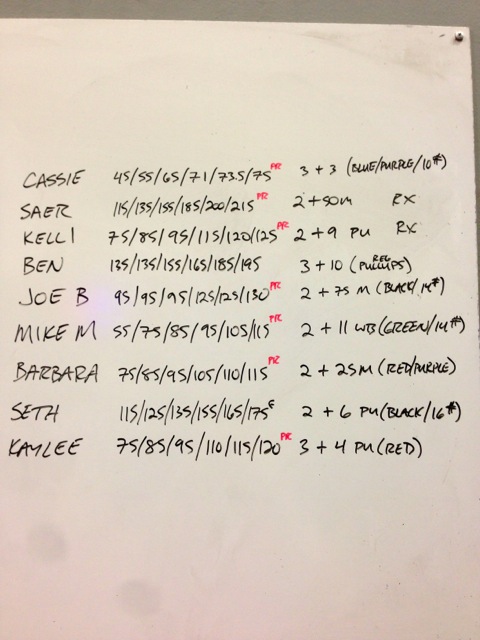 CASSIE 45/55/65/71/73.5/75 PR 3 + 3 (BLUE/PURPLE/10#)
SAER 115/135/155/185/200/215 PR 2 + 50M RX
KELLI 75/85/95/115/120/125 PR 2 + 9 PU RX
BEN 135/135/155/165/185/195 3 + 10 (REG PULLUPS)
JOE B 95/95/95/125/125/130 PR 2 + 75 M (BLACK/14#)
MIKE M 55/75/85/95/105/115 PR 2 + 11 WB (GREEN/14#)
BARBARA 75/85/95/105/110/115 PR 2 + 25M (RED/PURPLE)
SETH 115/125/135/155/165/175 F 2 + 6 PU (BLACK/16#)
KAYLEE 75/85/95/110/115/120 PR 3 + 4 PU (RED)